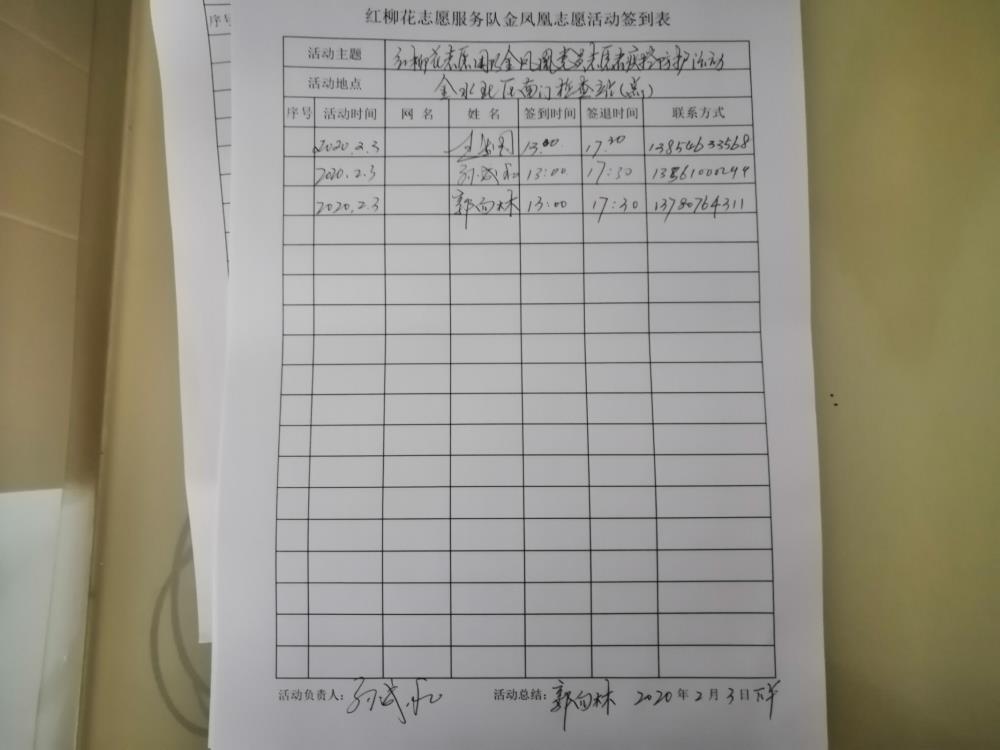 序号
红柳花志愿服务队金凤凰志愿活动签到表
活动主题 红柳花志愿团队金凤凰党员志愿者疫情防护活动
活动地点 金水北区南门检查站(点)
序号 活动时间 网 名 姓 名 签到时间 签退时间 联系方式
2020.2.3 13:00 17:30 13854633568
2020.2.3 孙武和 13:00 17:30
2020.2.3 郭向林 13:00 17:30 13780764311
活动负责人: 孙武和 活动总结: 郭向林 2020年2月3日下午